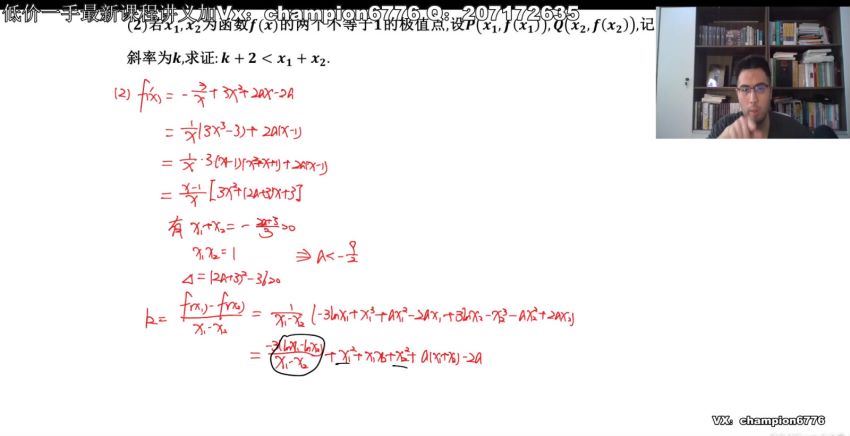 低价一手最新课程讲义加Vx：champion6776 Q：207172635
(2)若x₁,x₂为函数f(x)的两个不等于1的极值点,设P(x₁,f(x₁)),Q(x₂,f(x₂)),记
斜率为k,求证:k+2<x₁+x₂.
(2) f'(x) = -3/x + 3x² + 2ax - 2a
= 1/x (3x³-3) + 2a(x-1)
= 1/x · 3(x-1)(x²+x+1) + 2a(x-1)
= (x-1)/x [3x²+(2a+3)x+3]
有 x₁+x₂ = -(2a+3)/3 >0
x₁x₂ = 1 ⇒ a < -9/2
Δ = (2a+3)² - 36>0
k = (f(x₁)-f(x₂))/(x₁-x₂) = 1/(x₁-x₂) (-3lnx₁+x₁³+ax₁²-2ax₁+3lnx₂-x₂³-ax₂²+2ax₂)
= -3(lnx₁-lnx₂)/(x₁-x₂) + x₁²+x₁x₂+x₂²+a(x₁+x₂)-2a
VX：champion6776